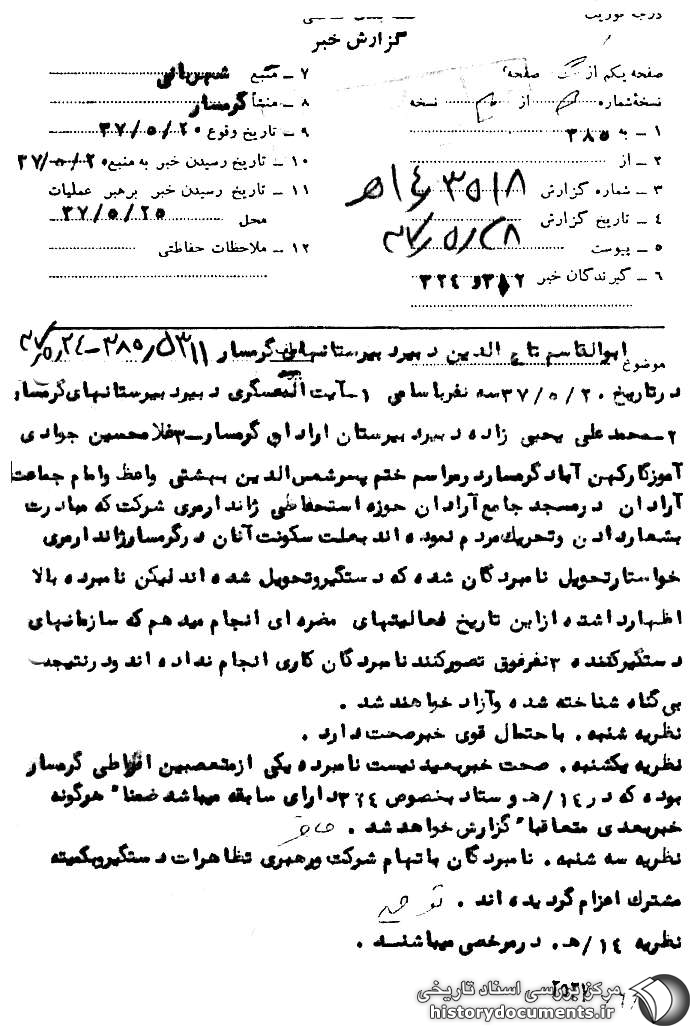 گزارش خبر
صفحه یکم از صفحه
نسخه شماره از نسخه
۱ ـ به ۳۸۵
۲ ـ از
۳ ـ شماره گزارش ۳۵۱۸/۱۴ه
۴ ـ تاریخ گزارش ۳۷/۵/۲۸
۵ ـ پیوست
۶ ـ گیرندگان خبر ۳۱۲ و ۳۲۴
۷ ـ منبع شهربانی
۸ ـ منشأ گرمسار
۹ ـ تاریخ وقوع ۳۷/۵/۲۰
۱۰ ـ تاریخ رسیدن خبر به منبع ۳۷/۵/۲۰
۱۱ ـ تاریخ رسیدن خبر برهبر عملیات
محل ۳۷/۵/۲۵
۱۲ ـ ملاحظات حفاظتی
موضوع ابوالقاسم تاج الدین دبیر دبیرستانهای گرمسار
درتاریخ ۳۷/۵/۲۰ سه نفر باسامی ۱ـ آیت الله عسگری دبیر دبیرستانهای گرمسار
۲ـ محمدعلی یحیی زاده دبیر دبیرستان ارادان گرمسار ـ ۳ غلامحسین جوادی
آموزگار کهن آباد گرمسار در مراسم ختم پسر شمس الدین بهشتی واعظ وامام جماعت
آرادان در مسجد جامع آرادان حوزه استحفاظی ژاندارمری شرکت که مبادرت
بشعار دادن وتحریک مردم نموده اند بعلت سکونت آنان در گرمسار ژاندارمری
خواستار تحویل نامبردگان شده که دستگیر وتحویل شده اند لیکن نامبرده بالا
اظهار داشته ازاین تاریخ فعالیتهای مضره ای انجام میدهم که سازمانهای
دستگیرکننده ۳ نفر فوق تصور کنند نامبردگان کاری انجام نداده اند ودر نتیجه
بی گناه شناخته شده وآزاد خواهند شد .
نظریه شنبه . باحتمال قوی خبر صحت دارد .
نظریه یکشنبه . صحت خبر بعید نیست نامبرده یکی از متعصبین افراطی گرمسار
بوده که در ۱۴/ه و ستاد بخصوص ۳۲۴ دارای سابقه میباشد ضمنا" هرگونه
خبر بعدی متعاقبا" گزارش خواهد شد .
نظریه سه شنبه . نامبردگان باتهام شرکت ورهبری تظاهرات دستگیر وبکمیته
مشترک اعزام گردیده اند .
نظریه ۱۴/ه . در مرخصی میباشند .
مرکز بررسی اسناد تاریخی
historydocuments.ir